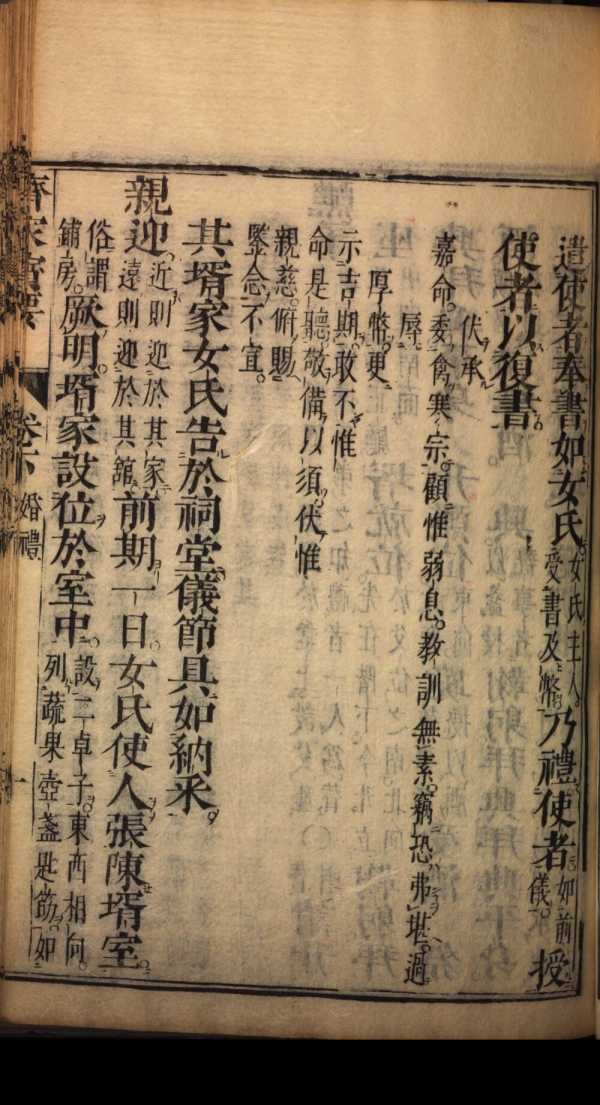 遣使者奉書如女氏。女氏主人。受書及幣乃禮使者如前儀。授
使者以復書
伏承
嘉命。委禽寒宗。顧惟弱息。教訓無素。竊恐弗堪。過
辱
厚幣。更
示吉期。敢不惟
命是聽。敬備以須。伏惟
親慈。俯賜
鑒念。不宣。
其壻家女氏告於祠堂儀節具如納采。
親迎近則迎於其家遠則迎於其館前期一日。女氏使人張陳壻室。
俗謂鋪房。厥明。壻家設位於室中。設二卓子。東西相向。列蔬果壺盞匙筯。如
齊家寶要 卷下 婚禮